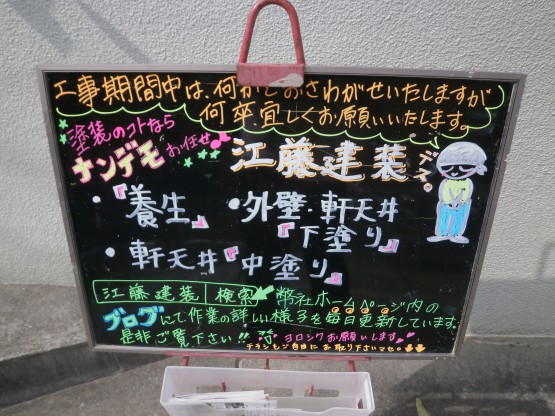 工事期間中は、何かとおさわがせいたしますが
何卒、宜しくお願いいたします。
塗装のコトなら
ナンデモお任せ♪
江藤建装
デス。
・『養生』 ・外壁・軒天井
『下塗り』
・軒天井『中塗り』
江藤建装 検索 弊社ホームページ内の
ブログにて作業の詳しい様子を毎日更新しています。
是非ご覧下さい!! ヨロシクお願いします♪
チラシもご自由にお取り下さいマセ。